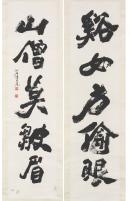 谿女方偷眼
山僧莫皺眉